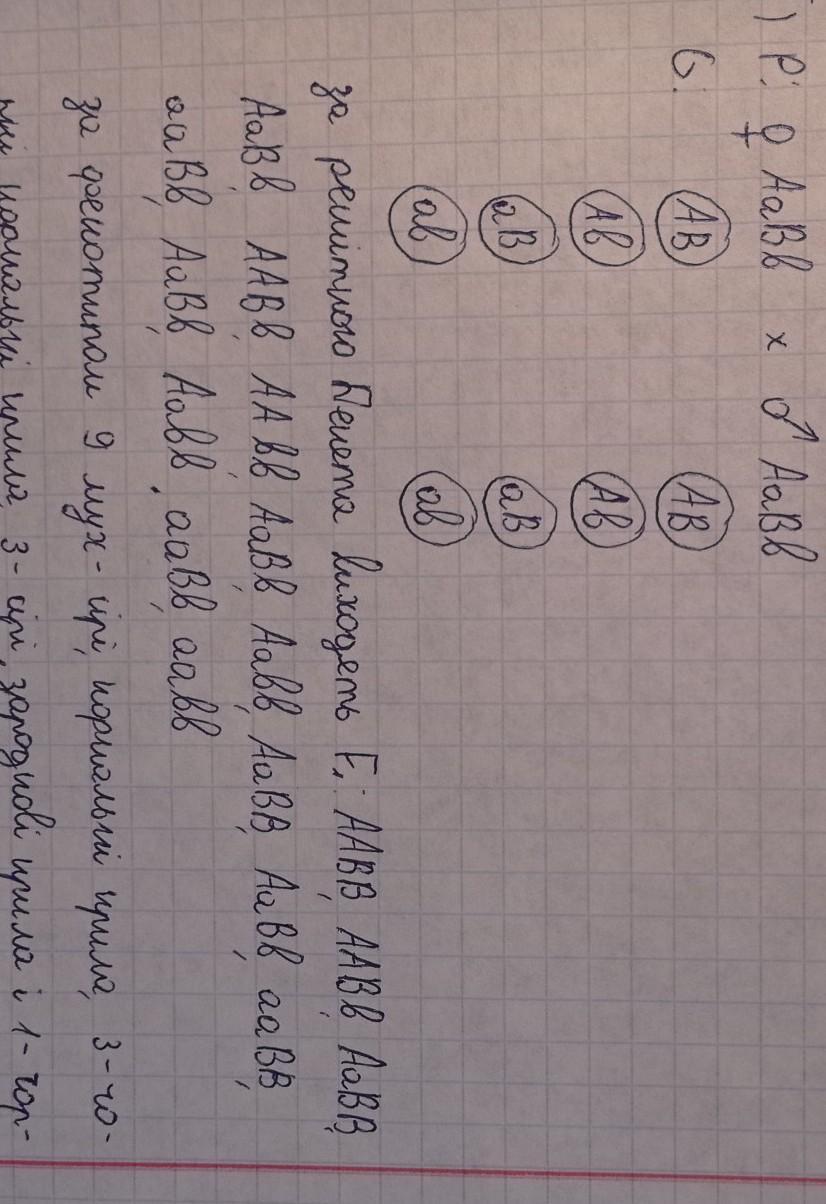 ) P: ♀ AaBb x ♂ AaBb
G: AB AB
Ab Ab
aB aB
ab ab
за решіткою Пенета виходять F₁: AABB, AABb, AaBB,
AaBb, AABb, AAbb, AaBb, Aabb, AaBB, AaBb, aaBB,
aaBb, AaBb, Aabb, aaBb, aabb
за фенотипом 9 мух - сірі, нормальні крила, 3 - чо-
рні нормальні крила, 3 - сірі, зародкові крила і 1 - чор-